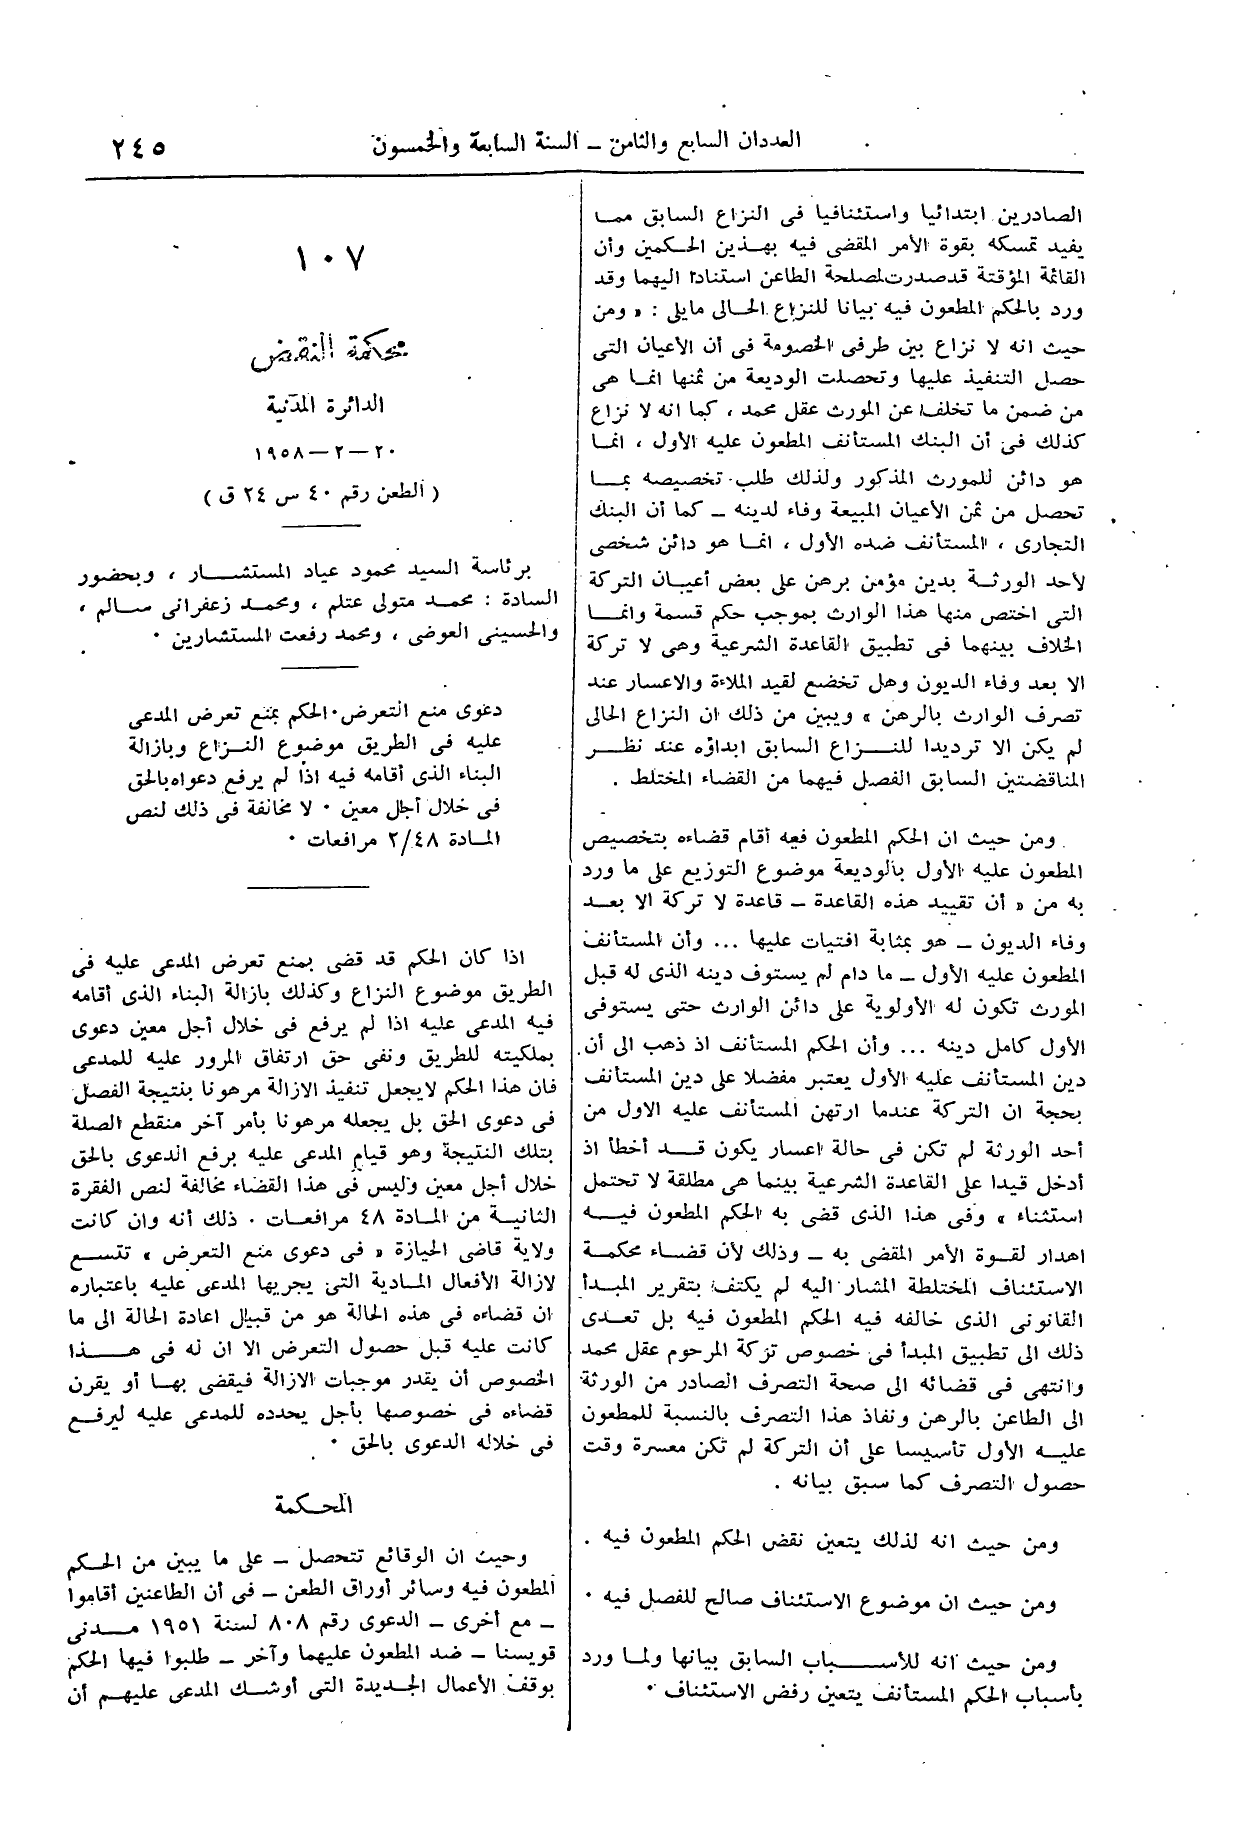 العددان السابع والثامن – السنة السابعة والخمسون
٢٤٥
الصادرين ابتدائيا واستئنافيا فى النزاع السابق مما
يفيد تمسكه بقوة الأمر المقضى فيه بهذين الحكمين وأن
القائمة المؤقتة قد صدرت لمصلحة الطاعن استنادا اليهما وقد
ورد بالحكم المطعون فيه بيانا للنزاع الحالى مايلى : « ومن
حيث انه لا نزاع بين طرفى الخصومة فى أن الأعيان التى
حصل التنفيذ عليها وتحصلت الوديعة من ثمنها انما هى
من ضمن ما تخلف عن المورث عقل محمد ، كما انه لا نزاع
كذلك فى أن البنك المستأنف المطعون عليه الأول ، انما
هو دائن للمورث المذكور ولذلك طلب تخصيصه بما
تحصل من ثمن الأعيان المبيعة وفاء لدينه – كما أن البنك
التجارى ، المستأنف ضده الأول ، انما هو دائن شخصى
لاحد الورثة بدين مؤمن برهن على بعض أعيان التركة
التى اختص منها هذا الوارث بموجب حكم قسمة وانما
الخلاف بينهما فى تطبيق القاعدة الشرعية وهى لا تركة
الا بعد وفاء الديون وهل تخضع لقيد الملاءة والاعسار عند
تصرف الوارث بالرهن » ويبين من ذلك ان النزاع الحالى
لم يكن الا ترديدا للنزاع السابق ابداؤه عند نظر
المناقضتين السابق الفصل فيهما من القضاء المختلط .
ومن حيث ان الحكم المطعون فيه أقام قضاءه بتخصيص
المطعون عليه الأول بالوديعة موضوع التوزيع على ما ورد
به من « أن تقييد هذه القاعدة – قاعدة لا تركة الا بعد
وفاء الديون – هو بمثابة افتيات عليها ... وأن المستأنف
المطعون عليه الأول – ما دام لم يستوف دينه الذى له قبل
المورث تكون له الأولوية على دائن الوارث حتى يستوفى
الأول كامل دينه ... وأن الحكم المستأنف اذ ذهب الى أن
دين المستأنف عليه الأول يعتبر مفضلا على دين المستأنف
بحجة ان التركة عندما ارتهن المستأنف عليه الاول من
أحد الورثة لم تكن فى حالة اعسار يكون قد أخطأ اذ
أدخل قيدا على القاعدة الشرعية بينما هى مطلقة لا تحتمل
استثناء » وفى هذا الذى قضى به الحكم المطعون فيه
اهدار لقوة الأمر المقضى به – وذلك لأن قضاء محكمة
الاستئناف المختلطة المشار اليه لم يكتف بتقرير المبدأ
القانونى الذى خالفه فيه الحكم المطعون فيه بل تعدى
ذلك الى تطبيق المبدأ فى خصوص تركة المرحوم عقل محمد
وانتهى فى قضائه الى صحة التصرف الصادر من الورثة
الى الطاعن بالرهن ونفاذ هذا التصرف بالنسبة للمطعون
عليه الأول تأسيسا على أن التركة لم تكن معسرة وقت
حصول التصرف كما سبق بيانه .
ومن حيث انه لذلك يتعين نقض الحكم المطعون فيه .
ومن حيث ان موضوع الاستئناف صالح للفصل فيه .
ومن حيث انه للأسباب السابق بيانها ولما ورد
بأسباب الحكم المستأنف يتعين رفض الاستئناف .
١٠٧
محكمة النقض
الدائرة المدنية
٢٠–٢–١٩٥٨
( الطعن رقم ٤٠ س ٢٤ ق )
برئاسة السيد محمود عياد المستشار ، وبحضور
السادة : محمد متولى عتلم ، ومحمد زعفرانى سالم ،
والحسينى العوضى ، ومحمد رفعت المستشارين .
دعوى منع التعرض . الحكم بمنع تعرض المدعى
عليه فى الطريق موضوع النزاع وبازالة
البناء الذى أقامه فيه اذا لم يرفع دعواه بالحق
فى خلال أجل معين . لا مخالفة فى ذلك لنص
المادة ٢/٤٨ مرافعات .
اذا كان الحكم قد قضى بمنع تعرض المدعى عليه فى
الطريق موضوع النزاع وكذلك بازالة البناء الذى أقامه
فيه المدعى عليه اذا لم يرفع فى خلال أجل معين دعوى
بملكيته للطريق ونفى حق ارتفاق المرور عليه للمدعى
فان هذا الحكم لايجعل تنفيذ الازالة مرهونا بنتيجة الفصل
فى دعوى الحق بل يجعله مرهونا بأمر آخر منقطع الصلة
بتلك النتيجة وهو قيام المدعى عليه برفع الدعوى بالحق
خلال أجل معين وليس فى هذا القضاء مخالفة لنص الفقرة
الثانية من المادة ٤٨ مرافعات . ذلك أنه وان كانت
ولاية قاضى الحيازة « فى دعوى منع التعرض » تتسع
لازالة الأفعال المادية التى يجريها المدعى عليه باعتباره
ان قضاءه فى هذه الحالة هو من قبيل اعادة الحالة الى ما
كانت عليه قبل حصول التعرض الا ان له فى هذا
الخصوص أن يقدر موجبات الازالة فيقضى بها أو يقرن
قضاءه فى خصوصها بأجل يحدده للمدعى عليه ليرفع
فى خلاله الدعوى بالحق .
المحكمة
وحيث ان الوقائع تتحصل – على ما يبين من الحكم
المطعون فيه وسائر أوراق الطعن – فى أن الطاعنين أقاموا
– مع أخرى – الدعوى رقم ٨٠٨ لسنة ١٩٥١ مدنى
قويسنا – ضد المطعون عليهما وآخر – طلبوا فيها الحكم
بوقف الأعمال الجديدة التى أوشك المدعى عليهم أن